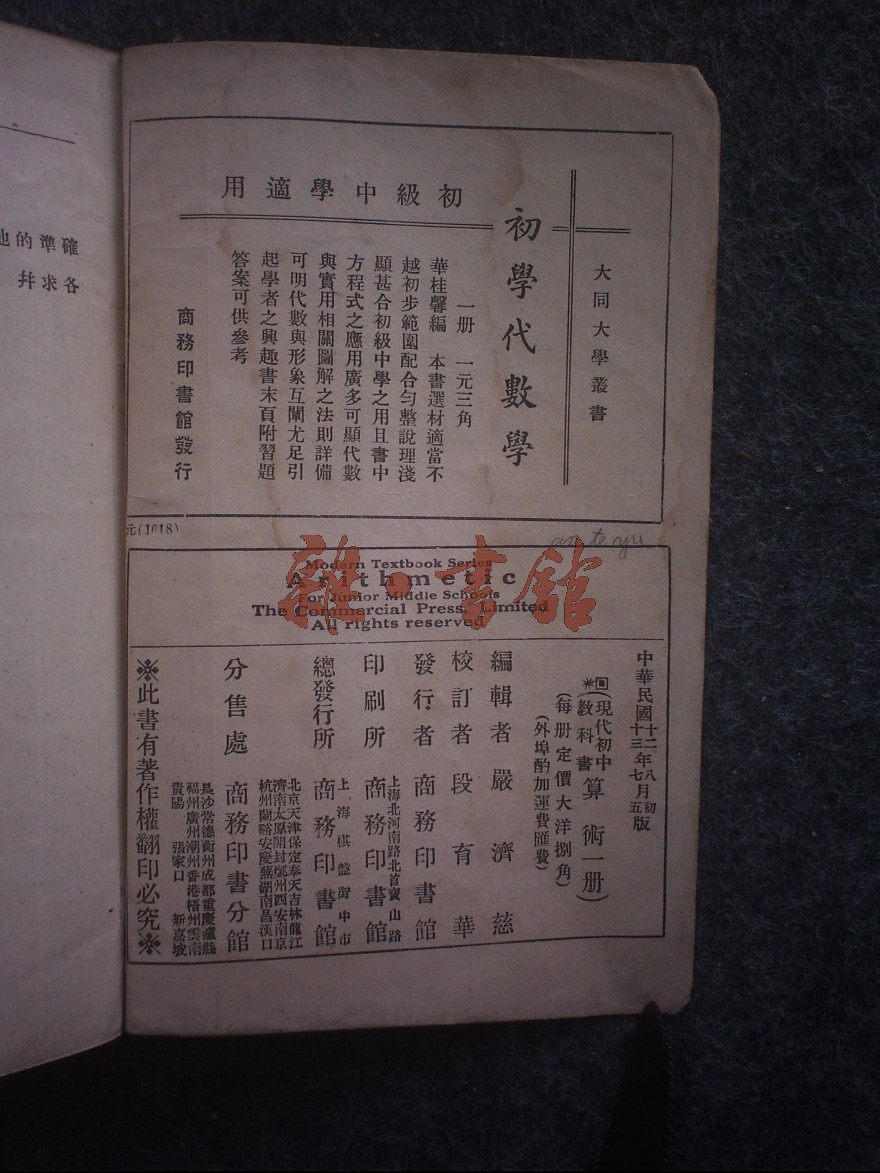 確
地的準
幷求各
大同大學叢書
初級中學適用
初學代數學
一册　一元三角
華桂馨編　本書選材適當不
越初步範圍配合勻整說理淺
顯甚合初級中學之用且書中
方程式之應用廣多可顯代數
與實用相關圖解之法則詳備
可明代數與形象互闡尤足引
起學者之興趣書末頁附習題
答案可供參考
商務印書館發行
元(1618)
an te yu
雜·書館
Modern Textbook Series
Arithmetic
For Junior Middle Schools
The Commercial Press, Limited
All rights reserved
中華民國十二年八月初版
十三年七月五版
(現代初中教科書)算術一册)
(每册定價大洋捌角)
(外埠酌加運費匯費)
編輯者　嚴濟慈
校訂者　段育華
發行者　商務印書館
印刷所　上海北河南路北首寶山路　商務印書館
總發行所　上海棋盤街中市　商務印書館
分售處　商務印書分館
北京天津保定奉天吉林龍江
濟南太原開封鄭州西安南京
杭州蘭谿安慶蕪湖南昌漢口
長沙常德衡州成都重慶瀘縣
福州廣州潮州香港梧州雲南
貴陽　張家口　新嘉坡
※此書有著作權翻印必究※